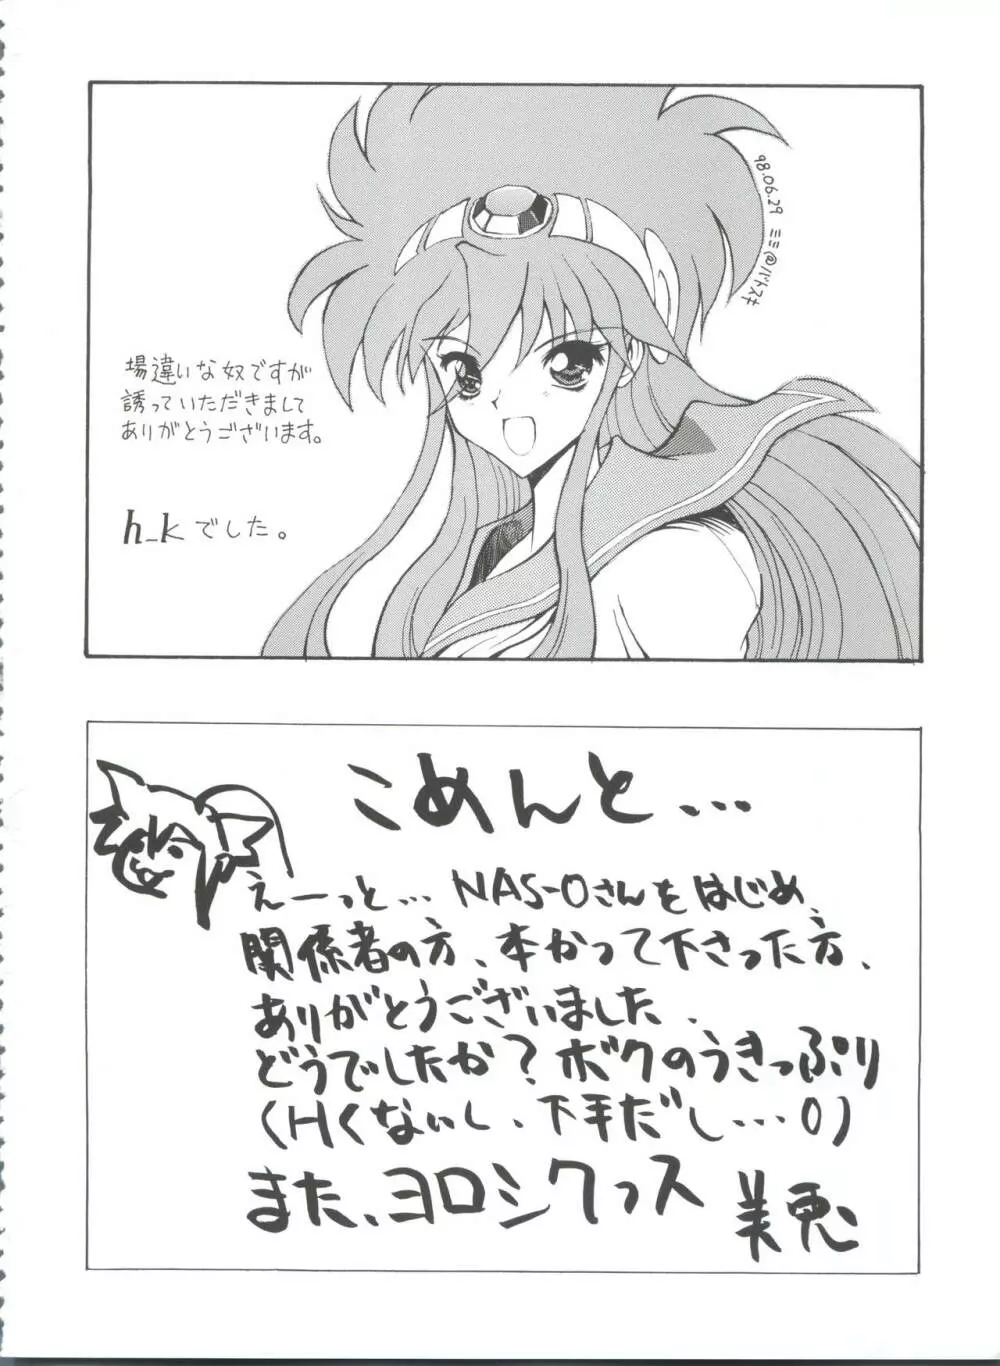 98.06.29 ミミ@バトスキ
場違いな奴ですが
誘っていただきまして
ありがとうございます。
h_kでした。
こめんと...
えーっと... NAS-Oさんをはじめ、
関係者の方、本かって下さった方、
ありがとうございました、
どうでしたか?ボクのうきっぷり
(Hくないし、下手だし...0)
また、ヨロシクっス
美兎